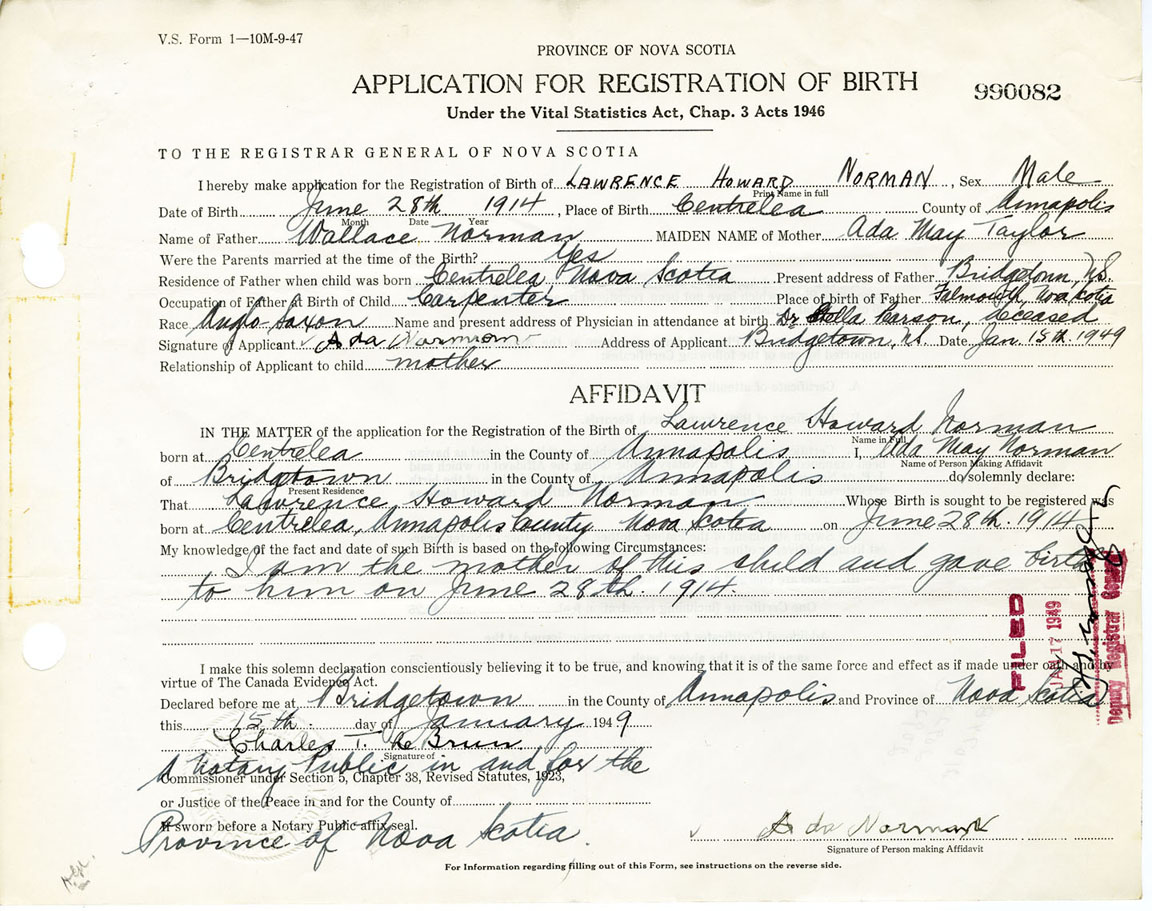 V.S. Form 1—10M-9-47
PROVINCE OF NOVA SCOTIA
APPLICATION FOR REGISTRATION OF BIRTH
990082
Under the Vital Statistics Act, Chap. 3 Acts 1946
TO THE REGISTRAR GENERAL OF NOVA SCOTIA
I hereby make application for the Registration of Birth of LAWRENCE HOWARD NORMAN, Sex Male
Print Name in full
Date of Birth June 28th 1914, Place of Birth Centrelea County of Annapolis
Month Date Year
Name of Father Wallace Norman MAIDEN NAME of Mother Ada May Taylor
Were the Parents married at the time of the Birth? Yes
Residence of Father when child was born Centrelea Nova Scotia Present address of Father Bridgetown, N.S.
Occupation of Father at Birth of Child Carpenter Place of birth of Father Falmouth, Nova Scotia
Race Anglo Saxon Name and present address of Physician in attendance at birth Dr Stella Pearson, deceased
Signature of Applicant Ada Norman Address of Applicant Bridgetown, N.S. Date Jan. 15th. 1949
Relationship of Applicant to child mother
AFFIDAVIT
IN THE MATTER of the application for the Registration of the Birth of Lawrence Howard Norman
Name in Full
born at Centrelea in the County of Annapolis I, Ada May Norman
Name of Person Making Affidavit
of Bridgetown in the County of Annapolis do solemnly declare:
Present Residence
That Lawrence Howard Norman Whose Birth is sought to be registered was
born at Centrelea, Annapolis County Nova Scotia on June 28th. 1914
My knowledge of the fact and date of such Birth is based on the following Circumstances:
I am the mother of this child and gave birth
to him on June 28th. 1914.
I make this solemn declaration conscientiously believing it to be true, and knowing that it is of the same force and effect as if made under oath and by
virtue of The Canada Evidence Act.
Declared before me at Bridgetown in the County of Annapolis and Province of Nova Scotia
this 15th. day of January 1949
Charles T. LeBrun
Signature of
A Notary Public in and for the
Commissioner under Section 5, Chapter 38, Revised Statutes, 1923,
or Justice of the Peace in and for the County of
If sworn before a Notary Public affix seal.
Province of Nova Scotia.
Ada Norman
Signature of Person making Affidavit
For Information regarding filling out of this Form, see instructions on the reverse side.
FILED
JAN 17 1949
Deputy Registrar General